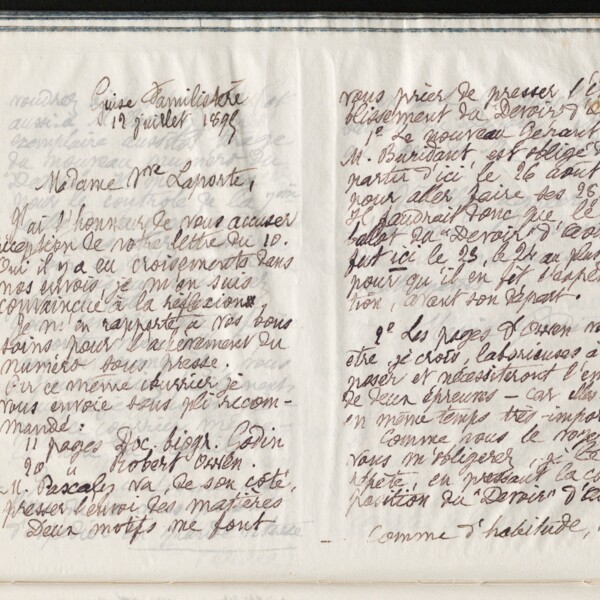 Guise Familistère
12 juillet 1895
Madame Vve Laporte,
J'ai l'honneur de vous accuser
réception de votre lettre du 10.
Oui il y a eu croisements dans
nos envois, je m'en suis
convaincue à la réflexion.
Je m'en rapporte à vos bons
soins pour l'achèvement du
numéro sous presse.
Par ce même courrier je
vous envoie sous pli recom-
mandé:
11 pages Doc. biogr. Godin
20 " Robert Owen.
M. Pascaly va, de son côté,
presser l'envoi des matières
Deux motifs me font
vous prier de presser l'é
blissement du "Devoir" d'
1º Le nouveau Gérant
M. Buridant, est obligé d
partir d'ici le 26 août
pour aller faire ses 28
Il faudrait donc que le
ballot du "Devoir" d'août
fut ici le 23, le 24 au plus
pour qu'il en fît l'expédi
tion, avant son départ.
2º Les pages d'Owen vo
être, je crois, laborieuses à
poser et nécessiteront l'en
de deux épreuves - car elles
en même temps très-impor
Comme vous le voyez
vous m'obligerez, je le
répète, en pressant la co
position du "Devoir" d'
Comme d'habitude,